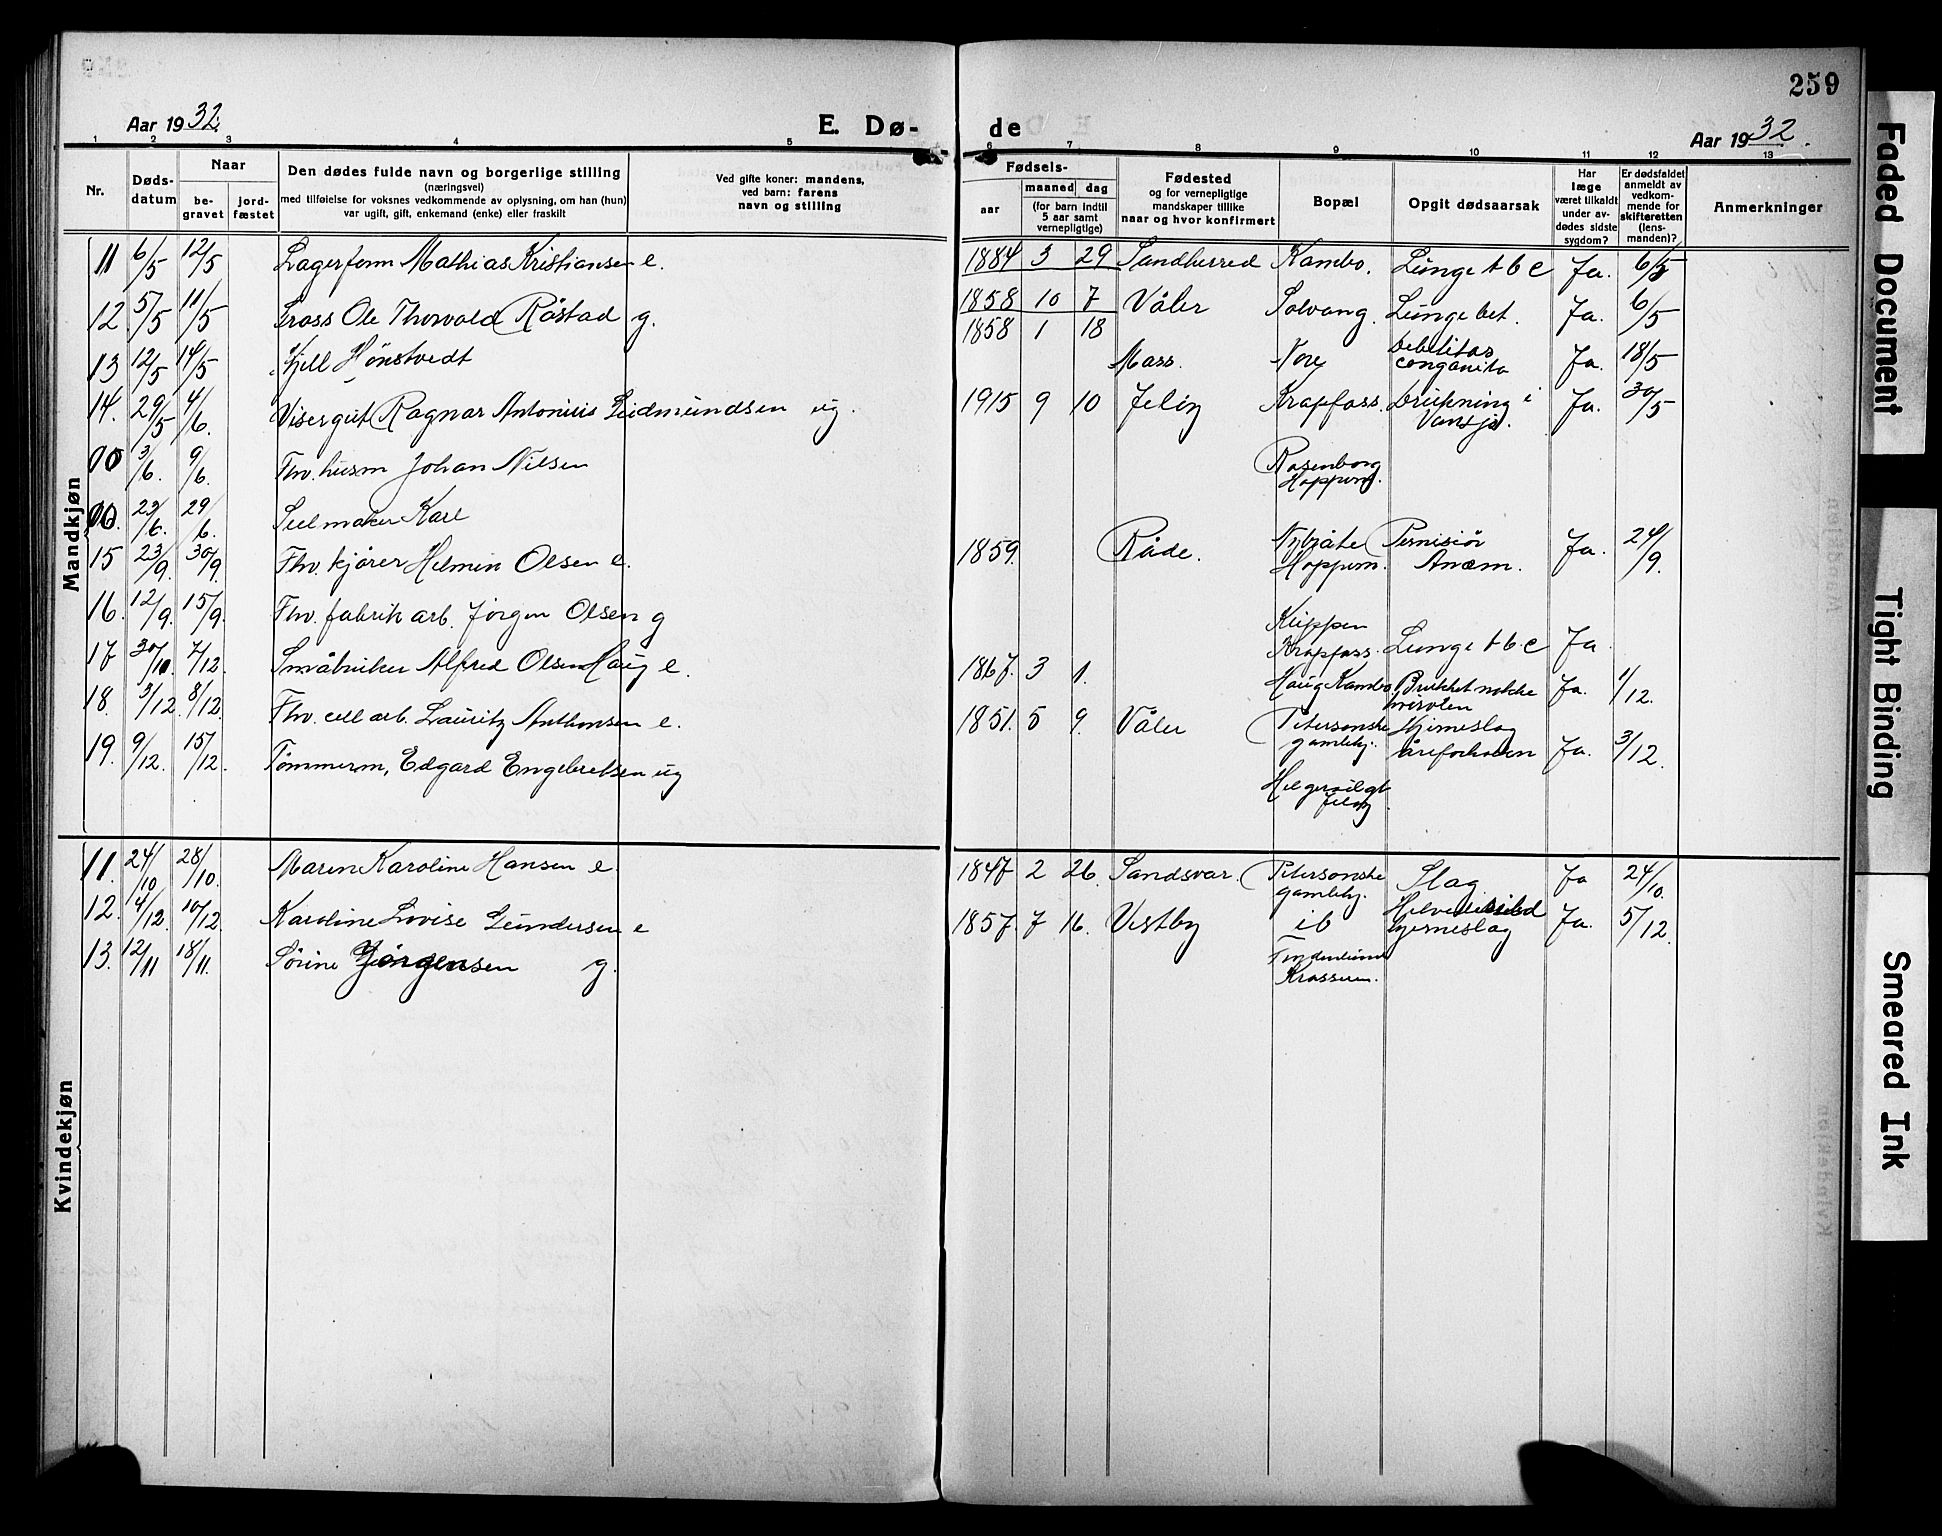 259
Aar 1932.
E. Dø-
de
Aar 1932.
1 2 3 4 5
6 7 8 9 10 11 12 13
Nr.
Døds-
datum
Naar
be-
gravet
jord-
fæstet
Den dødes fulde navn og borgerlige stilling
(næringsvei)
med tilføielse for voksnes vedkommende av oplysning, om han (hun)
var ugift, gift, enkemand (enke) eller fraskilt
Ved gifte koner: mandens,
ved barn: farens
navn og stilling
Fødsels-
aar
maaned
dag
(for barn indtil
5 aar samt
vernepligtige)
Fødested
og for vernepligtige
mandskaper tillike
naar og hvor konfirmert
Bopæl
Opgit dødsaarsak
Har
læge
været tilkaldt
under av-
dødes sidste
sygdom?
Er dødsfaldet
anmeldt av
vedkom-
mende for
skifteretten
(lens-
manden)?
Anmerkninger
Mandkjøn
11 6/5 12/5 Lagerform Mathias Kristiansen e. 1884 3 29 Sandherred Kambo. Lunge tbc Ja. 6/5
12 5/5 11/5 Ole Thorvald Råstad g. 1858 10 7 Våler Solvang. Lungebet. Ja. 6/5
1858 1 18
13 12/5 14/5 Kjell Hønstvedt Moss. Nore Debilitas
conganita Ja. 18/5
14. 29/5 4/6. Visergut Ragnar Antonius Gudmundsen ug. 1915 9 10 Jeløy Krapfoss. Drukning i
Vansjø. Ja. 30/5
3/6. 9/6. Fhv. husm Johan Nilsen Rosenborg
Hoppern.
29/6. 29/6. Seilmaker Karl
15 23/9. 30/9. Fhv. kjører Helmin Olsen e. 1859. Råde. Nybråte
Hoppern. Pernisiør
Anæm. Ja. 24/9.
16. 12/9. 15/9. Fhv. fabrik arb. Jørgen Olsen g Krapfoss. Lunge tbc Ja.
17 30/10. 7/12. Småbruker Alfred Olsen Haug e. 1867. 3 1. Haug Kambo Brukket nakke Ja. 1/12.
18. 3/12. 8/12. Fhv. cell arb. Lauritz Anthonsen e. 1851. 5 9. Våler Petersonske
gamlehj. Hjerneslag
Ja. 3/12.
19. 9/12. 15/12. Tømmerm, Edgard Engebretsen ug
Jeløy
Kvindekjøn
11. 24/10 28/10. Maren Karoline Hansen e 1847 2 26. Sandsvær. Petersonske
gamlehj. Slag. Ja 24/10.
12. 4/12. 10/12. Karoline Lovise Gundersen e 1857. 7 16. Vestby ib
Hjerneslag Ja. 5/12.
13. 12/11 18/11. Sørine Jørgensen g.
Krosseren.
Faded Document
Tight Binding
Smeared Ink